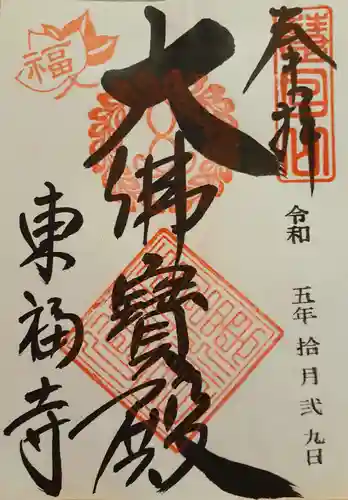 奉拝
令和 五年 拾月 弐 九日
大佛寶殿
東福寺
福